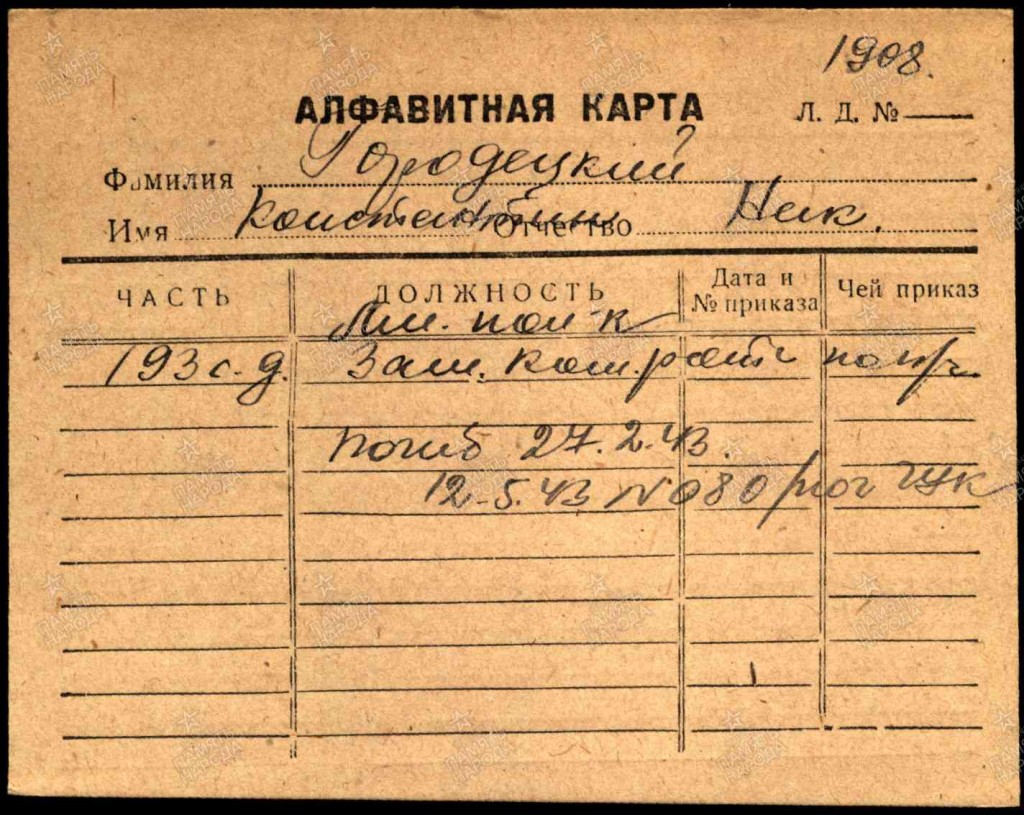 1908.
АЛФАВИТНАЯ КАРТА Л. Д. №
Фамилия Городецкий
Имя Константин Отчество Ник.
ЧАСТЬ ДОЛЖНОСТЬ Дата и № приказа Чей приказ
Мл. пол-к
193 с. д. Зам. ком. роты по п/ч
погиб 27.2.43.
12.5.43 № 080/пог ГУК